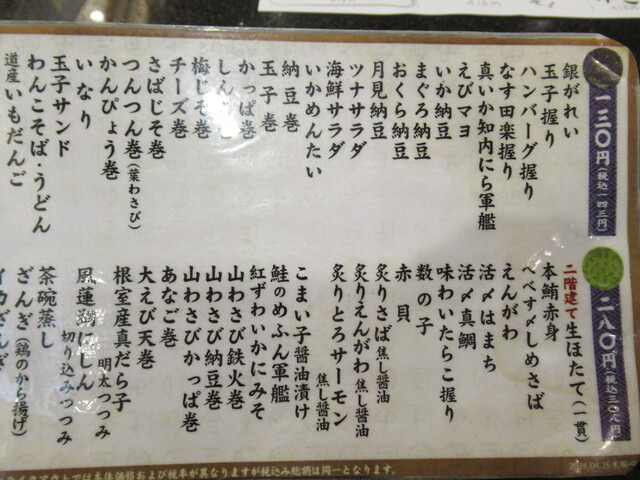 一三〇円(税込一四三円)
銀がれい
玉子握り
ハンバーグ握り
なす田楽握り
真いか知内にら軍艦
えびマヨ
いか納豆
まぐろ納豆
おくら納豆
月見納豆
ツナサラダ
海鮮サラダ
いかめんたい
納豆巻
玉子巻
かっぱ巻
しんこ巻
梅じそ巻
チーズ巻
さばじそ巻
つんつん巻(葉わさび)
かんぴょう巻
いなり
玉子サンド
わんこそば・うどん
道産いもだんご
二八〇円(税込三〇八円)
二階建て生ほたて(一貫)
本鮪赤身
へべす〆しめさば
えんがわ
活〆はまち
活〆真鯛
味わいたらこ握り
数の子
赤貝
炙りさば焦し醤油
炙りえんがわ焦し醤油
炙りとろサーモン焦し醤油
こまい子醤油漬け
鮭のめふん軍艦
紅ずわいかにみそ
山わさび鉄火巻
山わさび納豆巻
山わさびかっぱ巻
あなご巻
大えび天巻
根室産真だら子
明太つつみ
風蓮湖にしん
切り込みつつみ
茶碗蒸し
ざんぎ(鶏のから揚げ)
イカざんぎ
テイクアウトでは本体価格および税率が異なりますが税込み総額は同一となります。